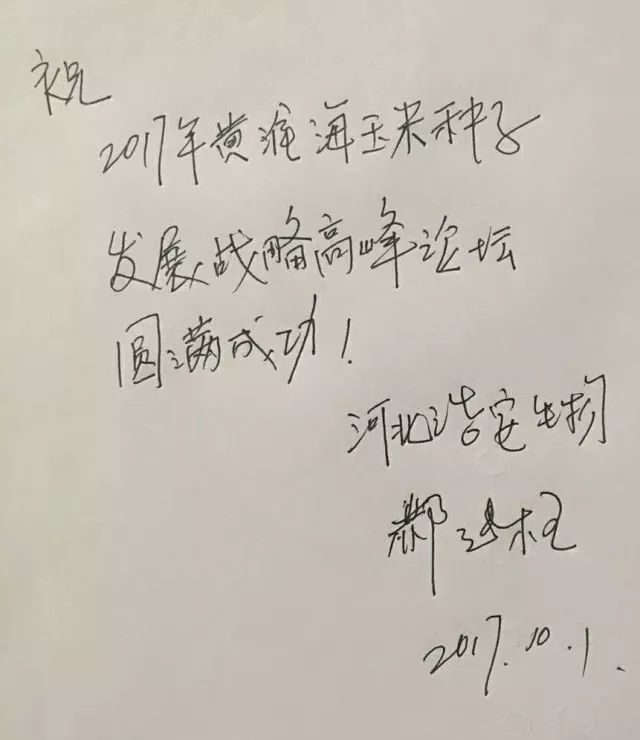 祝
2017年黄淮海玉米种子
发展战略高峰论坛
圆满成功！
河北浩安生物
2017.10.1.